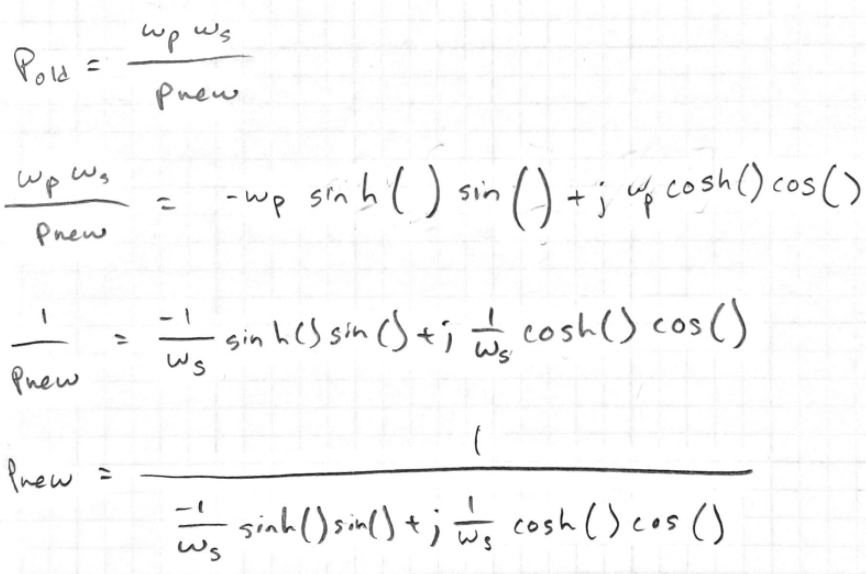 Pold = ωp ωs / Pnew
ωp ωs / Pnew = -ωp sinh() sin() + j ωp cosh() cos()
1 / Pnew = -1/ωs sinh() sin() + j 1/ωs cosh() cos()
Pnew = 1 / (-1/ωs sinh() sin() + j 1/ωs cosh() cos())